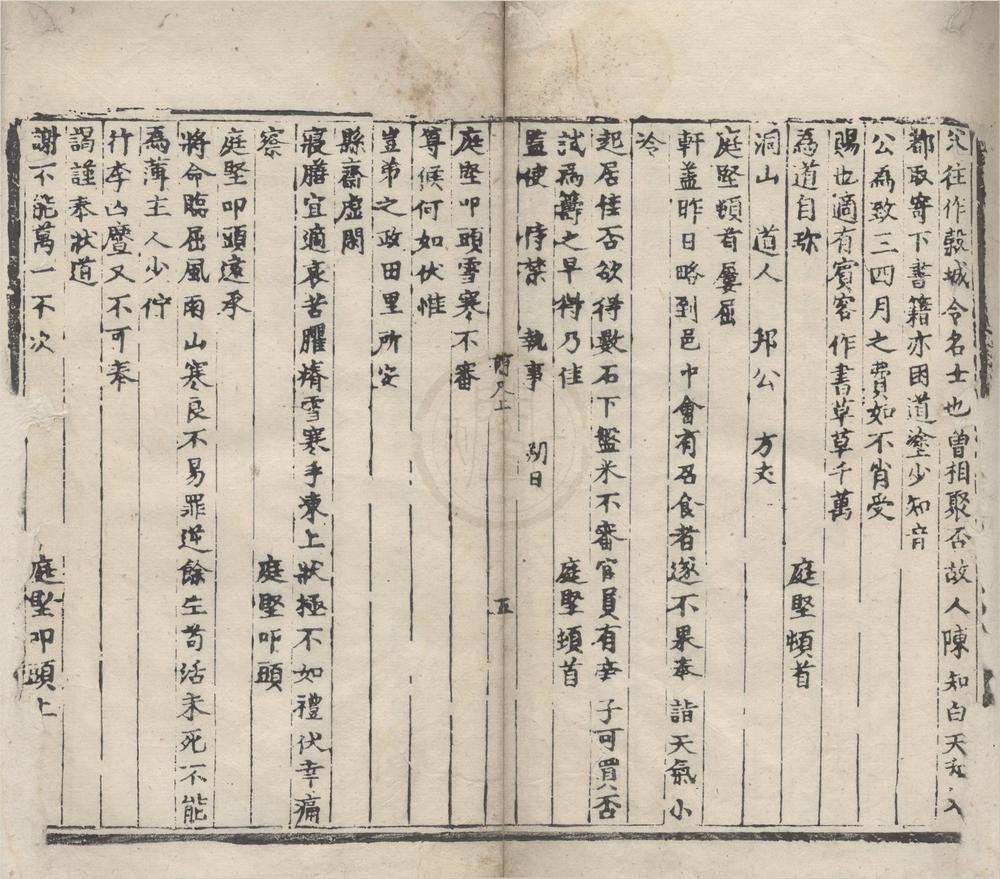 父往作穀城令名士也曾相聚否故人陳知白天
都取寄下書籍亦困道塗少知音
公為致三四月之費如不肖受
賜也適有賓客作書草草千萬
為道自珎 庭堅頓首
洞山 道人 邦公 方丈
庭堅頓首屢屈
軒盖昨日略到邑中會有召食者遂不果奉 詣天氣小
冷
起居佳否欲得數石下盤米不審官員有 子可買否
試為籌之早得乃佳 庭堅頓首
監使 時棻 執事 朔日
簡尺上 五
庭堅叩頭雪寒不審
尊候何如伏惟
豈弟之政田里所安
縣齋虛閑
寢膳宜適哀苦臞瘠雪寒手凍上狀極不如禮伏幸痛
察 庭堅叩頭
庭堅叩頭遠承
將命臨屈風雨山寒良不易罪逆餘生苟活未死不能
為薄主人少佇
行李凶釁又不可奉
謁謹奉狀道
謝不能萬一不次 庭堅叩頭上